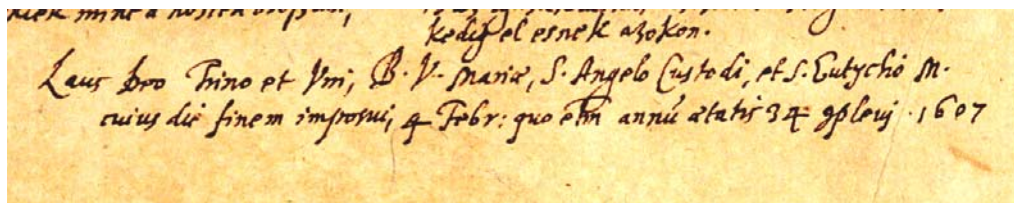 kedig el esnek azokon.
Laus Deo Trino et Vni, B. V. Mariæ, S. Angelo Custodi, et S. Eutychio M.
cuius die finem imposui, 4 Febr: quo etm̃ annũ ætatis 34 ꝯpleui. 1607